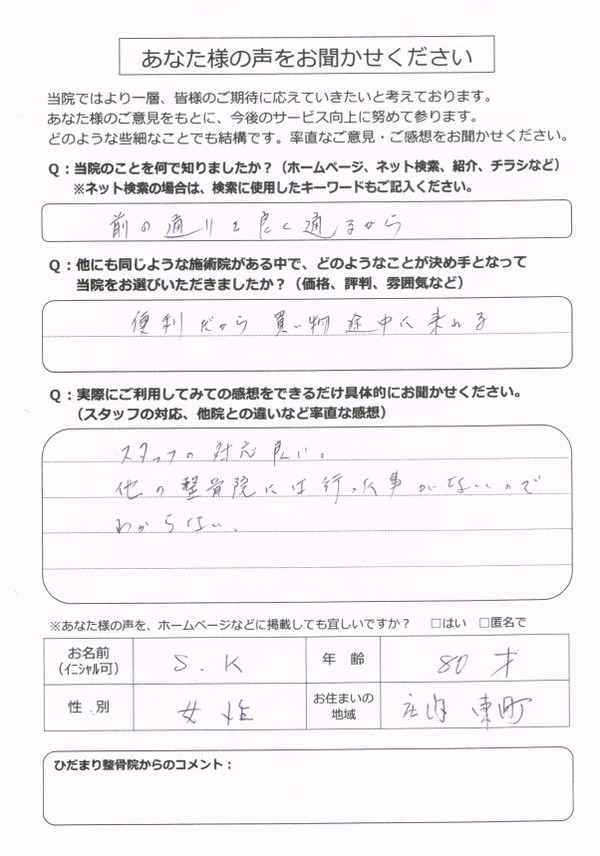 あなた様の声をお聞かせください
当院ではより一層、皆様のご期待に応えていきたいと考えております。
あなた様のご意見をもとに、今後のサービス向上に努めて参ります。
どのような些細なことでも結構です。率直なご意見・ご感想をお聞かせください。
Q：当院のことを何で知りましたか？（ホームページ、ネット検索、紹介、チラシなど）
※ネット検索の場合は、検索に使用したキーワードもご記入ください。
前の通りを良く通るから
Q：他にも同じような施術院がある中で、どのようなことが決め手となって
当院をお選びいただきましたか？（価格、評判、雰囲気など）
便利だから 買い物途中に来れる
Q：実際にご利用してみての感想をできるだけ具体的にお聞かせください。
（スタッフの対応、他院との違いなど率直な感想）
スタッフの対応良い。
他の整骨院には行った事がないので
わからない。
※あなた様の声を、ホームページなどに掲載しても宜しいですか？ □はい □匿名で
お名前 S.K 年 齢 80才
（イニシャル可）
性 別 女性 お住まいの 庄内東町
地域
ひだまり整骨院からのコメント：